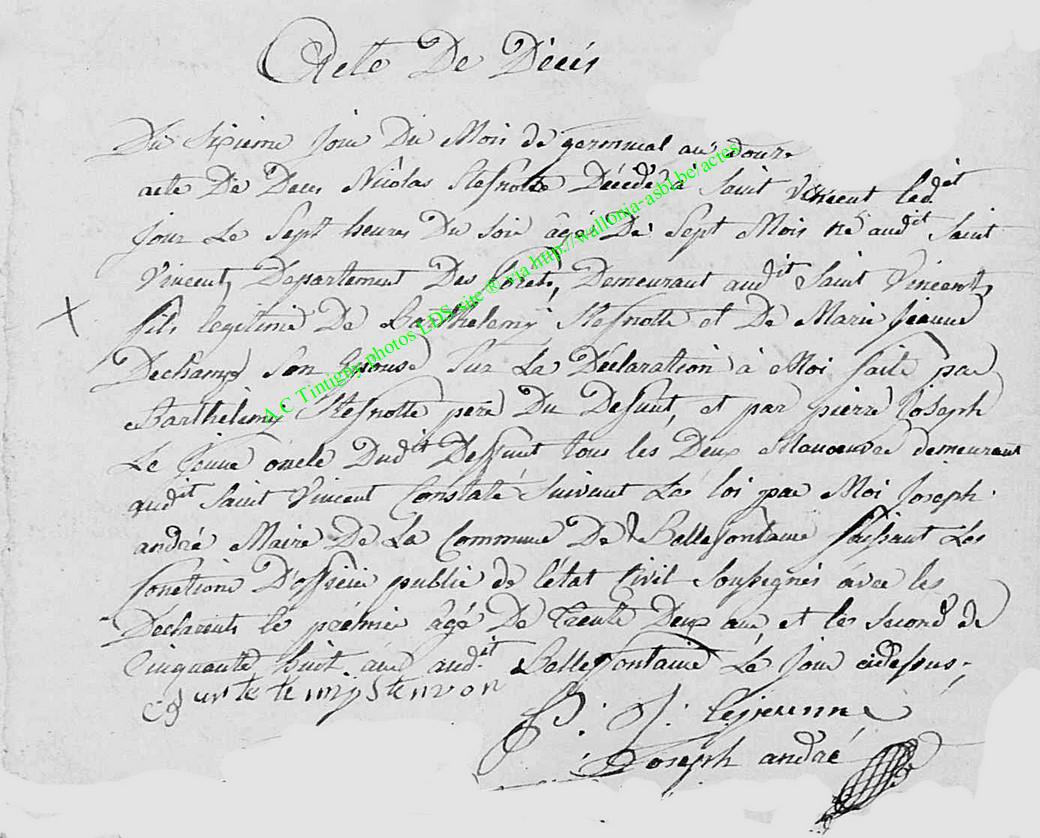 Acte De Décés
Du Sixieme Jour Du Mois de germinal an douze
acte De Deces Nicolas Stefnotte Décédé à Saint Vincent ledit
Jour Le Sept heures Du soir âgé De Sept Mois né audit Saint
Vincent, Departement Des forets, Demeurant audit Saint Vincent,
fils legitime De Barthelemy Stefnotte et De Marie Jeanne
Dechamps Son Epouse Sur La Déclaration à Moi faite par
Barthelemy Stefnotte pere Du Defunt, et par pierre Joseph
Le Jeune oncle Dudit Deffunt tous les Deux Manoeuvre demeurant
audit Saint Vincent Constaté Suivant La loi par Moi Joseph
andré Maire De La Commune De Bellefontaine faisant Les
fonctions D'officier public de l'état Civil Soussignés avec les
Déclarants le prémier âgé De Trente Deux ans et le Second de
Cinquante huit ans audit Bellefontaine Le Jour cidessus,
P. J. lejeunne
Joseph andré
A.C Tintigny photos LDS site ® via http://wallonia-asbl.be/actes